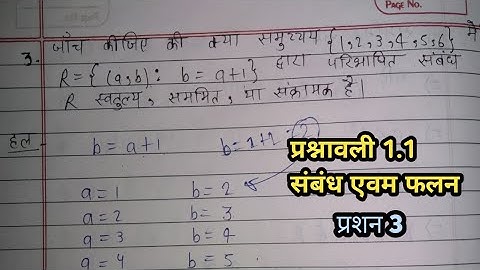 PAGE NO.
3. जाँच कीजिए की क्या समुच्चय {1,2,3,4,5,6} में
R = { (a,b) : b = a+1 } द्वारा परिभाषित संबंध
R स्वतुल्य, सममित, या संक्रामक है।
हल
b = a+1 b = 1+1 = 2
a = 1 b = 2
a = 2 b = 3
a = 3 b = 4
a = 4 b = 5
प्रश्नावली 1.1
संबंध एवम फलन
प्रशन 3